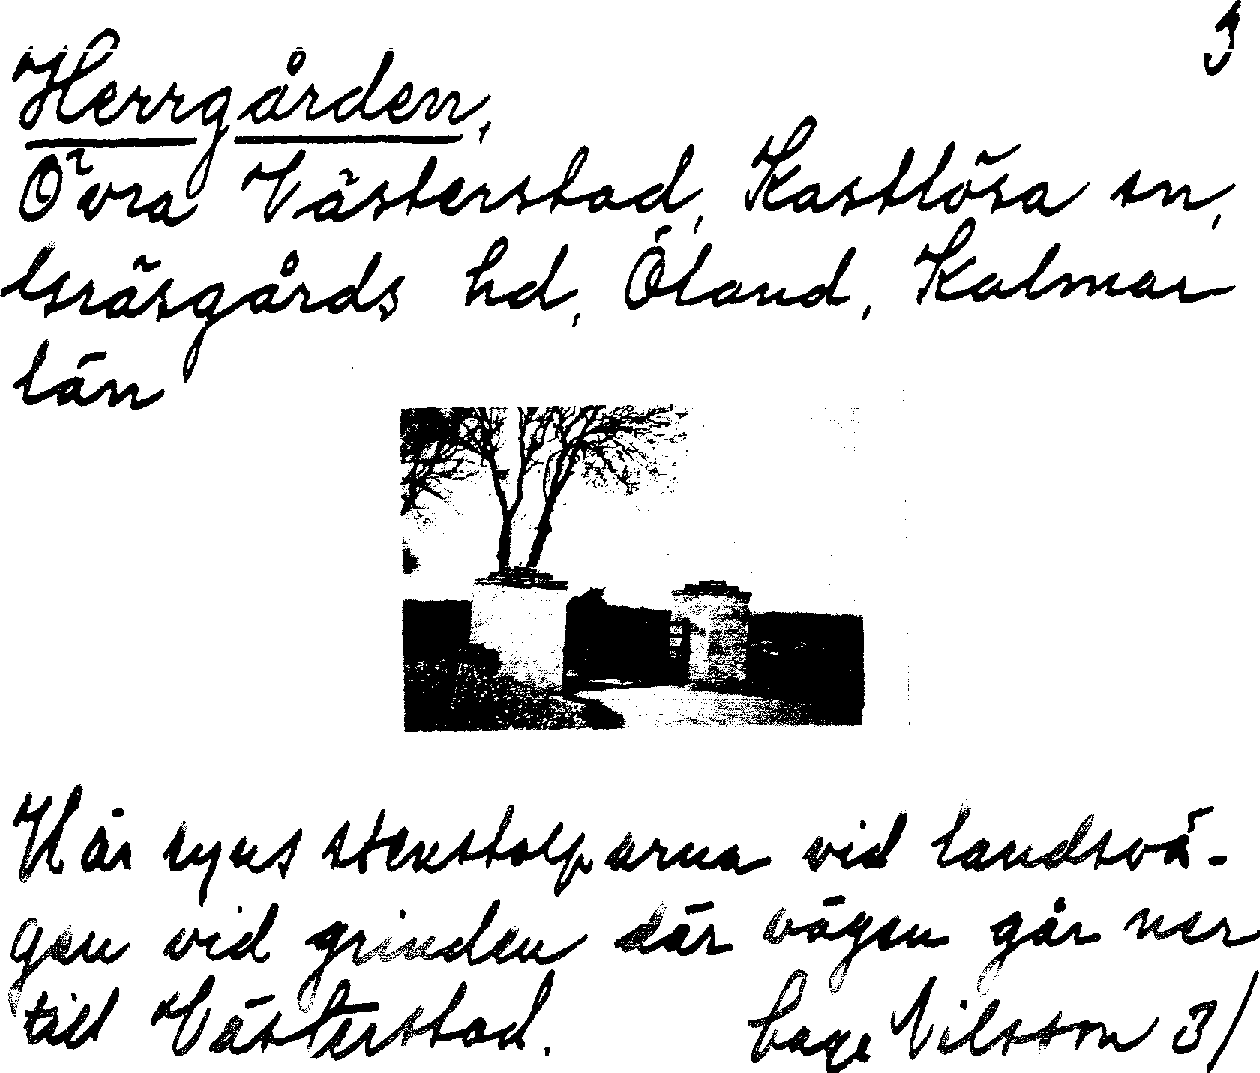 3
Herrgården,
Övra Västerstad, Kastlösa sn,
Gräsgårds hd, Öland, Kalmar
län
Här syns stenstolparna vid landsvä-
gen vid grinden där vägen går ner
till Västerstad. Nilsson 3/